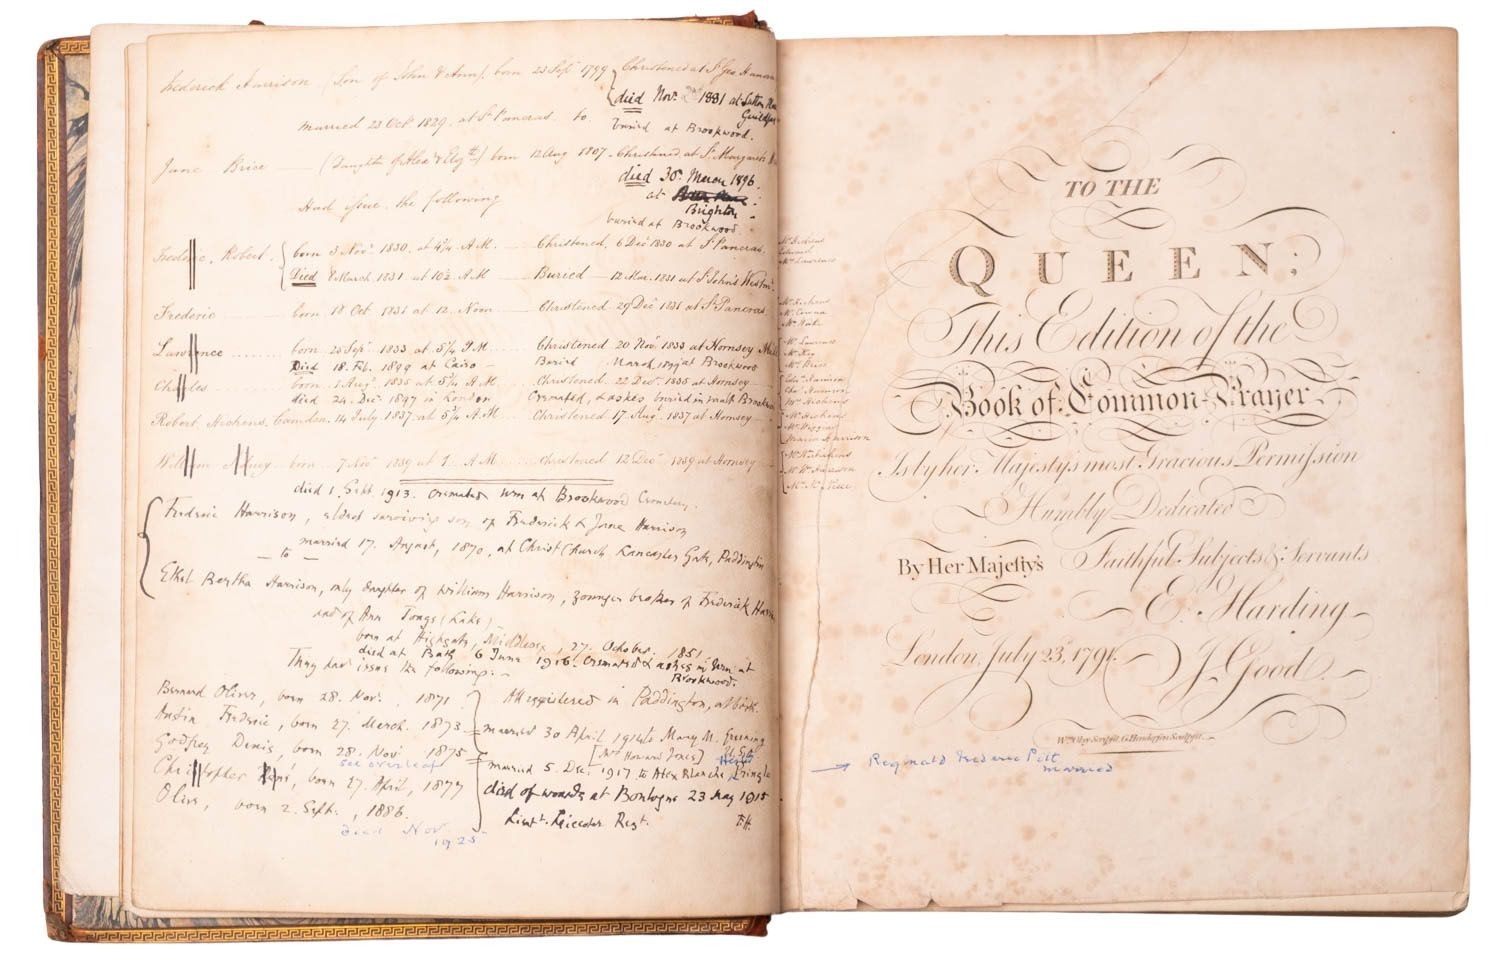 Frederick Harrison (Son of John & Ann), born 23 Sept 1799 Christened at St Geo. Hanover
died Nov. 2nd 1881 at Sutton Place
Guildford
married 23 Oct 1829, at St Pancras to.
buried at Brookwood.
Jane Brice (Daughter of Alex & Elizth) born 12 Aug 1807. Christened at St Margarets
died 30. March 1896.
Had issue the following
at
Brighton
buried at Brookwood.
Frederic, Robert. born 3 Nov. 1830. at 4¾ A.M. Christened, 6 Dec 1830 at St Pancras.
Died 8 March. 1831 at 10½ A.M Buried 12 Mar. 1831 at St John's Westmr.
Frederic born 18 Oct 1831 at 12. Noon Christened. 29 Dec 1831 at St Pancras
Lawrence born 28 Sept. 1833 at 5¼ P.M. Christened 20 Nov. 1833 at Hornsey
Died 18. Feb. 1899 at Cairo Buried March. 1899 at Brookwood
Charles born 1 Augt. 1835 at 5¼ A.M. Christened 22 Dec. 1835 at Hornsey
died 24. Dec. 1897 in London Cremated, & ashes buried in vault Brookwood
Robert Hichens, Camden. 14 July 1837. at 5¾ A.M Christened 17. Aug. 1837 at Hornsey
William born 7 Nov. 1839 at 1. A.M. Christened 12 Dec. 1839 at Hornsey
died 1. Sept. 1913. cremated urn at Brookwood Cemetery.
Frederic Harrison, eldest surviving son of Frederick & Jane Harrison
married 17. August, 1870, at Christ Church Lancaster Gate, Paddington
to
Ethel Bertha Harrison, only daughter of William Harrison, younger brother of Frederick Harrison
and of Ann Tonge (Lake)
born at Highgate, Middlesex, 27. October. 1851.
died at Bath 6 June 1916. cremated & ashes in Urn at
Brookwood.
They have issue the following:-
Bernard Oliver, born 28. Nov. 1871. All registered in Paddington, at birth.
Austin Frederic, born 27. March. 1873 married 30 April 1914 to Mary M. Greening
[Mrs Howard Jones] U.S.A.
Godfrey Denis, born 28. Nov 1875 married 5. Dec. 1917 to Alex Blanche, Pringle
see overleaf
Christopher René, born 27. April, 1877 died of wounds at Boulogne 23 May 1915
Olive, born 2. Sept. 1886. Lieut. Leicester Regt. F.H.
died Nov.
1925
TO THE
QUEEN:
This Edition of the
Book of Common-Prayer
Is by her Majesty's most Gracious Permission
Humbly Dedicated
By Her Majesty's Faithful Subjects & Servants
E. Harding
London, July 23, 1791. J. Good.
Mr. Hichens
Edward
Mr. Lawrence
Mr. Hichens
Mr. Lawrence
Mr. Hay
Mr. Brice
Edw. Harrison
Chas. Harrison
Mr. Hichens
Mr. Hichens
Mr. Higgins
Maria Harrison
Mr. W. Harrison
Reginald Frederic Pitt
married